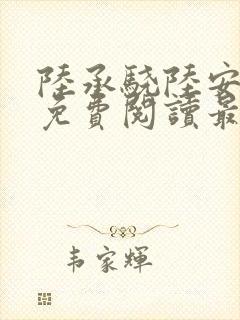 陸承驍陸安
免費閱讀最
韦家輝